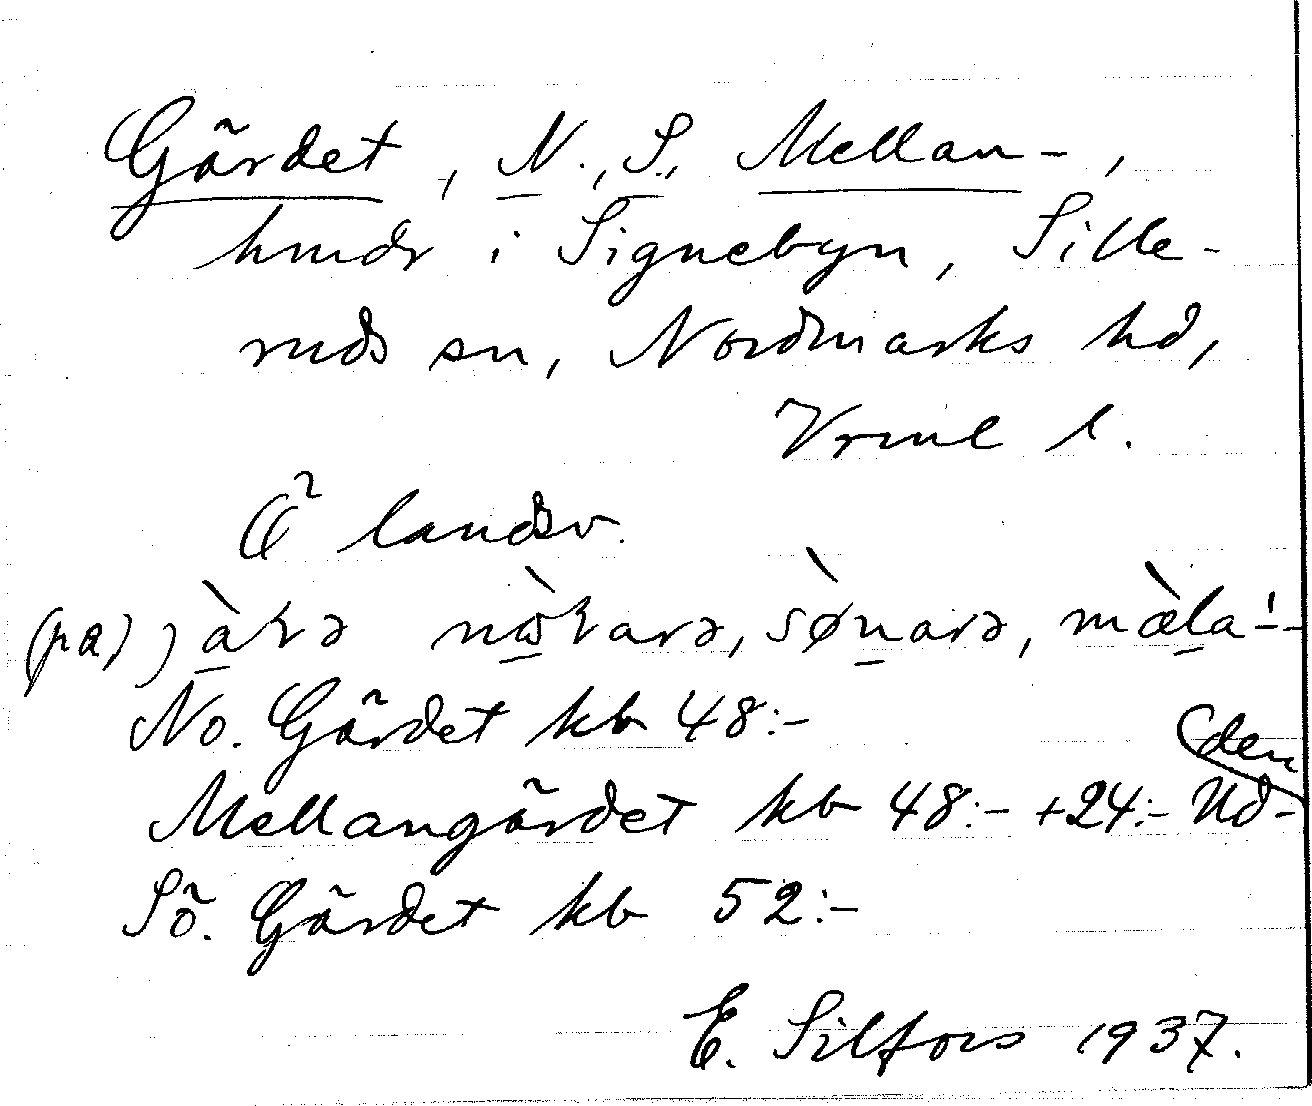 Gärdet, N., S., Mellan-,
hmdr i Signebyn, Sille-
ruds sn, Nordmarks hd,
Vrml l.
Ö landsv.
(pa) jàɽə nòɽarə, sø̀narə, mæ̀la'-
No. Gärdet kb 48:-
Mellangärdet kb 48:- +24:- Ud-
(den
Sö. Gärdet kb 52:-
E. Silfors 1937.